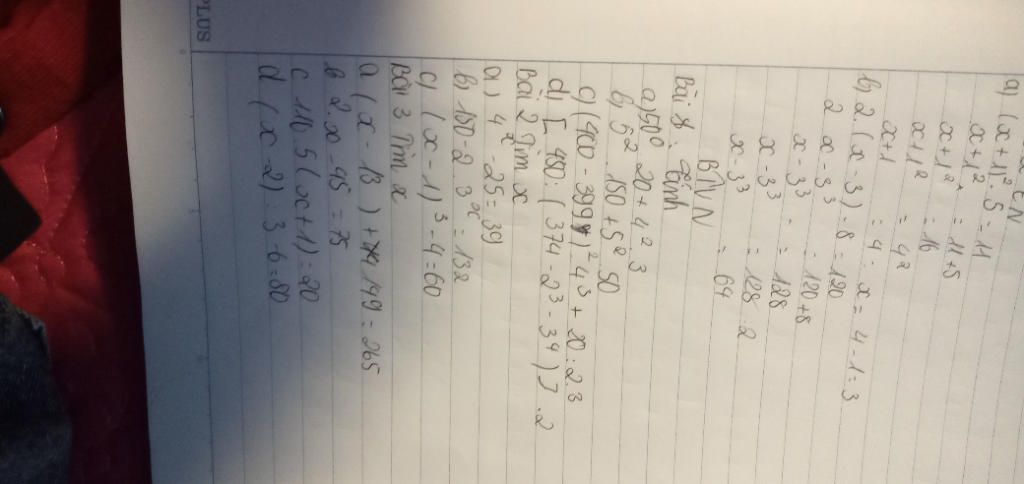 x ∈ N
a) (x+1)². 5 = 11
x+1² = 11+5
x+1² = 16
x+1² = 4²
x+1 = 4. x = 4-1=3
b, 2 (x-3)³-8=120
2 x-3³ = 120+8
x-3³ = 128
x-3³ = 128 : 2
x-3³ = 64
BTVN
Bài 1: Tính
a) 50 20 + 4² 3
b, 6² 150 + 5² 50
c) (400 - 399)² 4³ + 20 : 2³
d) [ 480 : ( 374 - 2³ - 3⁴ ) ] . 2
Bài 2 Tìm x
a) 4ˣ - 25 = 39
b, 150 - 2 3ˣ = 132
c) (x - 1)³ - 4 = 60
Bài 3 Tìm x
a ( x - 13 ) + 149 = 265
b 2. x - 45 = 75
c 110. 5 ( x+1) = 20
d ( x - 2) : 3 - 6 = 80
PLUS